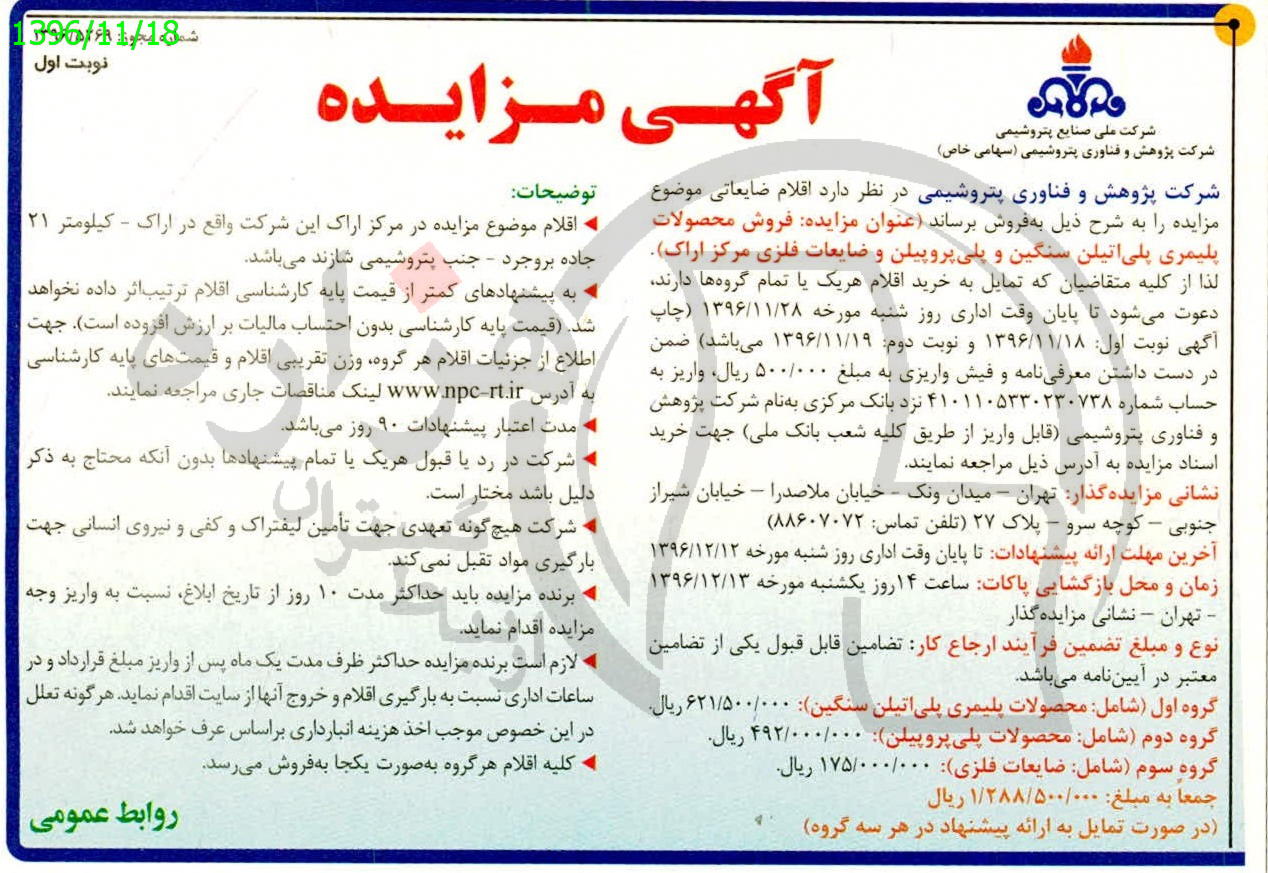 1396/11/18
شماره مجوز: ۱۳۹۶/۵۲۶۹
نوبت اول
آگهـی مـزایـده
شرکت ملی صنایع پتروشیمی
شرکت پژوهش و فناوری پتروشیمی (سهامی خاص)
شرکت پژوهش و فناوری پتروشیمی در نظر دارد اقلام ضایعاتی موضوع
مزایده را به شرح ذیل به‌فروش برساند (عنوان مزایده: فروش محصولات
پلیمری پلی‌اتیلن سنگین و پلی‌پروپیلن و ضایعات فلزی مرکز اراک).
لذا از کلیه متقاضیان که تمایل به خرید اقلام هریک یا تمام گروه‌ها دارند،
دعوت می‌شود تا پایان وقت اداری روز شنبه مورخه ۱۳۹۶/۱۱/۲۸ (چاپ
آگهی نوبت اول: ۱۳۹۶/۱۱/۱۸ و نوبت دوم: ۱۳۹۶/۱۱/۱۹ می‌باشد) ضمن
در دست داشتن معرفی‌نامه و فیش واریزی به مبلغ ۵۰۰/۰۰۰ ریال، واریز به
حساب شماره ۴۱۰۱۱۰۵۳۳۰۲۳۰۷۳۸ نزد بانک مرکزی به‌نام شرکت پژوهش
و فناوری پتروشیمی (قابل واریز از طریق کلیه شعب بانک ملی) جهت خرید
اسناد مزایده به آدرس ذیل مراجعه نمایند.
نشانی مزایده‌گذار: تهران – میدان ونک - خیابان ملاصدرا – خیابان شیراز
جنوبی – کوچه سرو – پلاک ۲۷ (تلفن تماس: ۸۸۶۰۷۰۷۲)
آخرین مهلت ارائه پیشنهادات: تا پایان وقت اداری روز شنبه مورخه ۱۳۹۶/۱۲/۱۲
زمان و محل بازگشایی پاکات: ساعت ۱۴روز یکشنبه مورخه ۱۳۹۶/۱۲/۱۳
- تهران – نشانی مزایده‌گذار
نوع و مبلغ تضمین فرآیند ارجاع کار: تضامین قابل قبول یکی از تضامین
معتبر در آیین‌نامه می‌باشد.
گروه اول (شامل: محصولات پلیمری پلی‌اتیلن سنگین): ۶۲۱/۵۰۰/۰۰۰ ریال.
گروه دوم (شامل: محصولات پلی‌پروپیلن): ۴۹۲/۰۰۰/۰۰۰ ریال.
گروه سوم (شامل: ضایعات فلزی): ۱۷۵/۰۰۰/۰۰۰ ریال.
جمعاً به مبلغ: ۱/۲۸۸/۵۰۰/۰۰۰ ریال
(در صورت تمایل به ارائه پیشنهاد در هر سه گروه)
توضیحات:
◀ اقلام موضوع مزایده در مرکز اراک این شرکت واقع در اراک - کیلومتر ۲۱
جاده بروجرد - جنب پتروشیمی شازند می‌باشد.
◀ به پیشنهادهای کمتر از قیمت پایه کارشناسی اقلام ترتیب‌اثر داده نخواهد
شد. (قیمت پایه کارشناسی بدون احتساب مالیات بر ارزش افزوده است). جهت
اطلاع از جزئیات اقلام هر گروه، وزن تقریبی اقلام و قیمت‌های پایه کارشناسی
به آدرس www.npc-rt.ir لینک مناقصات جاری مراجعه نمایند.
◀ مدت اعتبار پیشنهادات ۹۰ روز می‌باشد.
◀ شرکت در رد یا قبول هریک یا تمام پیشنهادها بدون آنکه محتاج به ذکر
دلیل باشد مختار است.
◀ شرکت هیچ‌گونه تعهدی جهت تأمین لیفتراک و کفی و نیروی انسانی جهت
بارگیری مواد تقبل نمی‌کند.
◀ برنده مزایده باید حداکثر مدت ۱۰ روز از تاریخ ابلاغ، نسبت به واریز وجه
مزایده اقدام نماید.
◀ لازم است برنده مزایده حداکثر ظرف مدت یک ماه پس از واریز مبلغ قرارداد و در
ساعات اداری نسبت به بارگیری اقلام و خروج آنها از سایت اقدام نماید. هر گونه تعلل
در این خصوص موجب اخذ هزینه انبارداری براساس عرف خواهد شد.
◀ کلیه اقلام هر گروه به‌صورت یکجا به‌فروش می‌رسد.
روابط عمومی